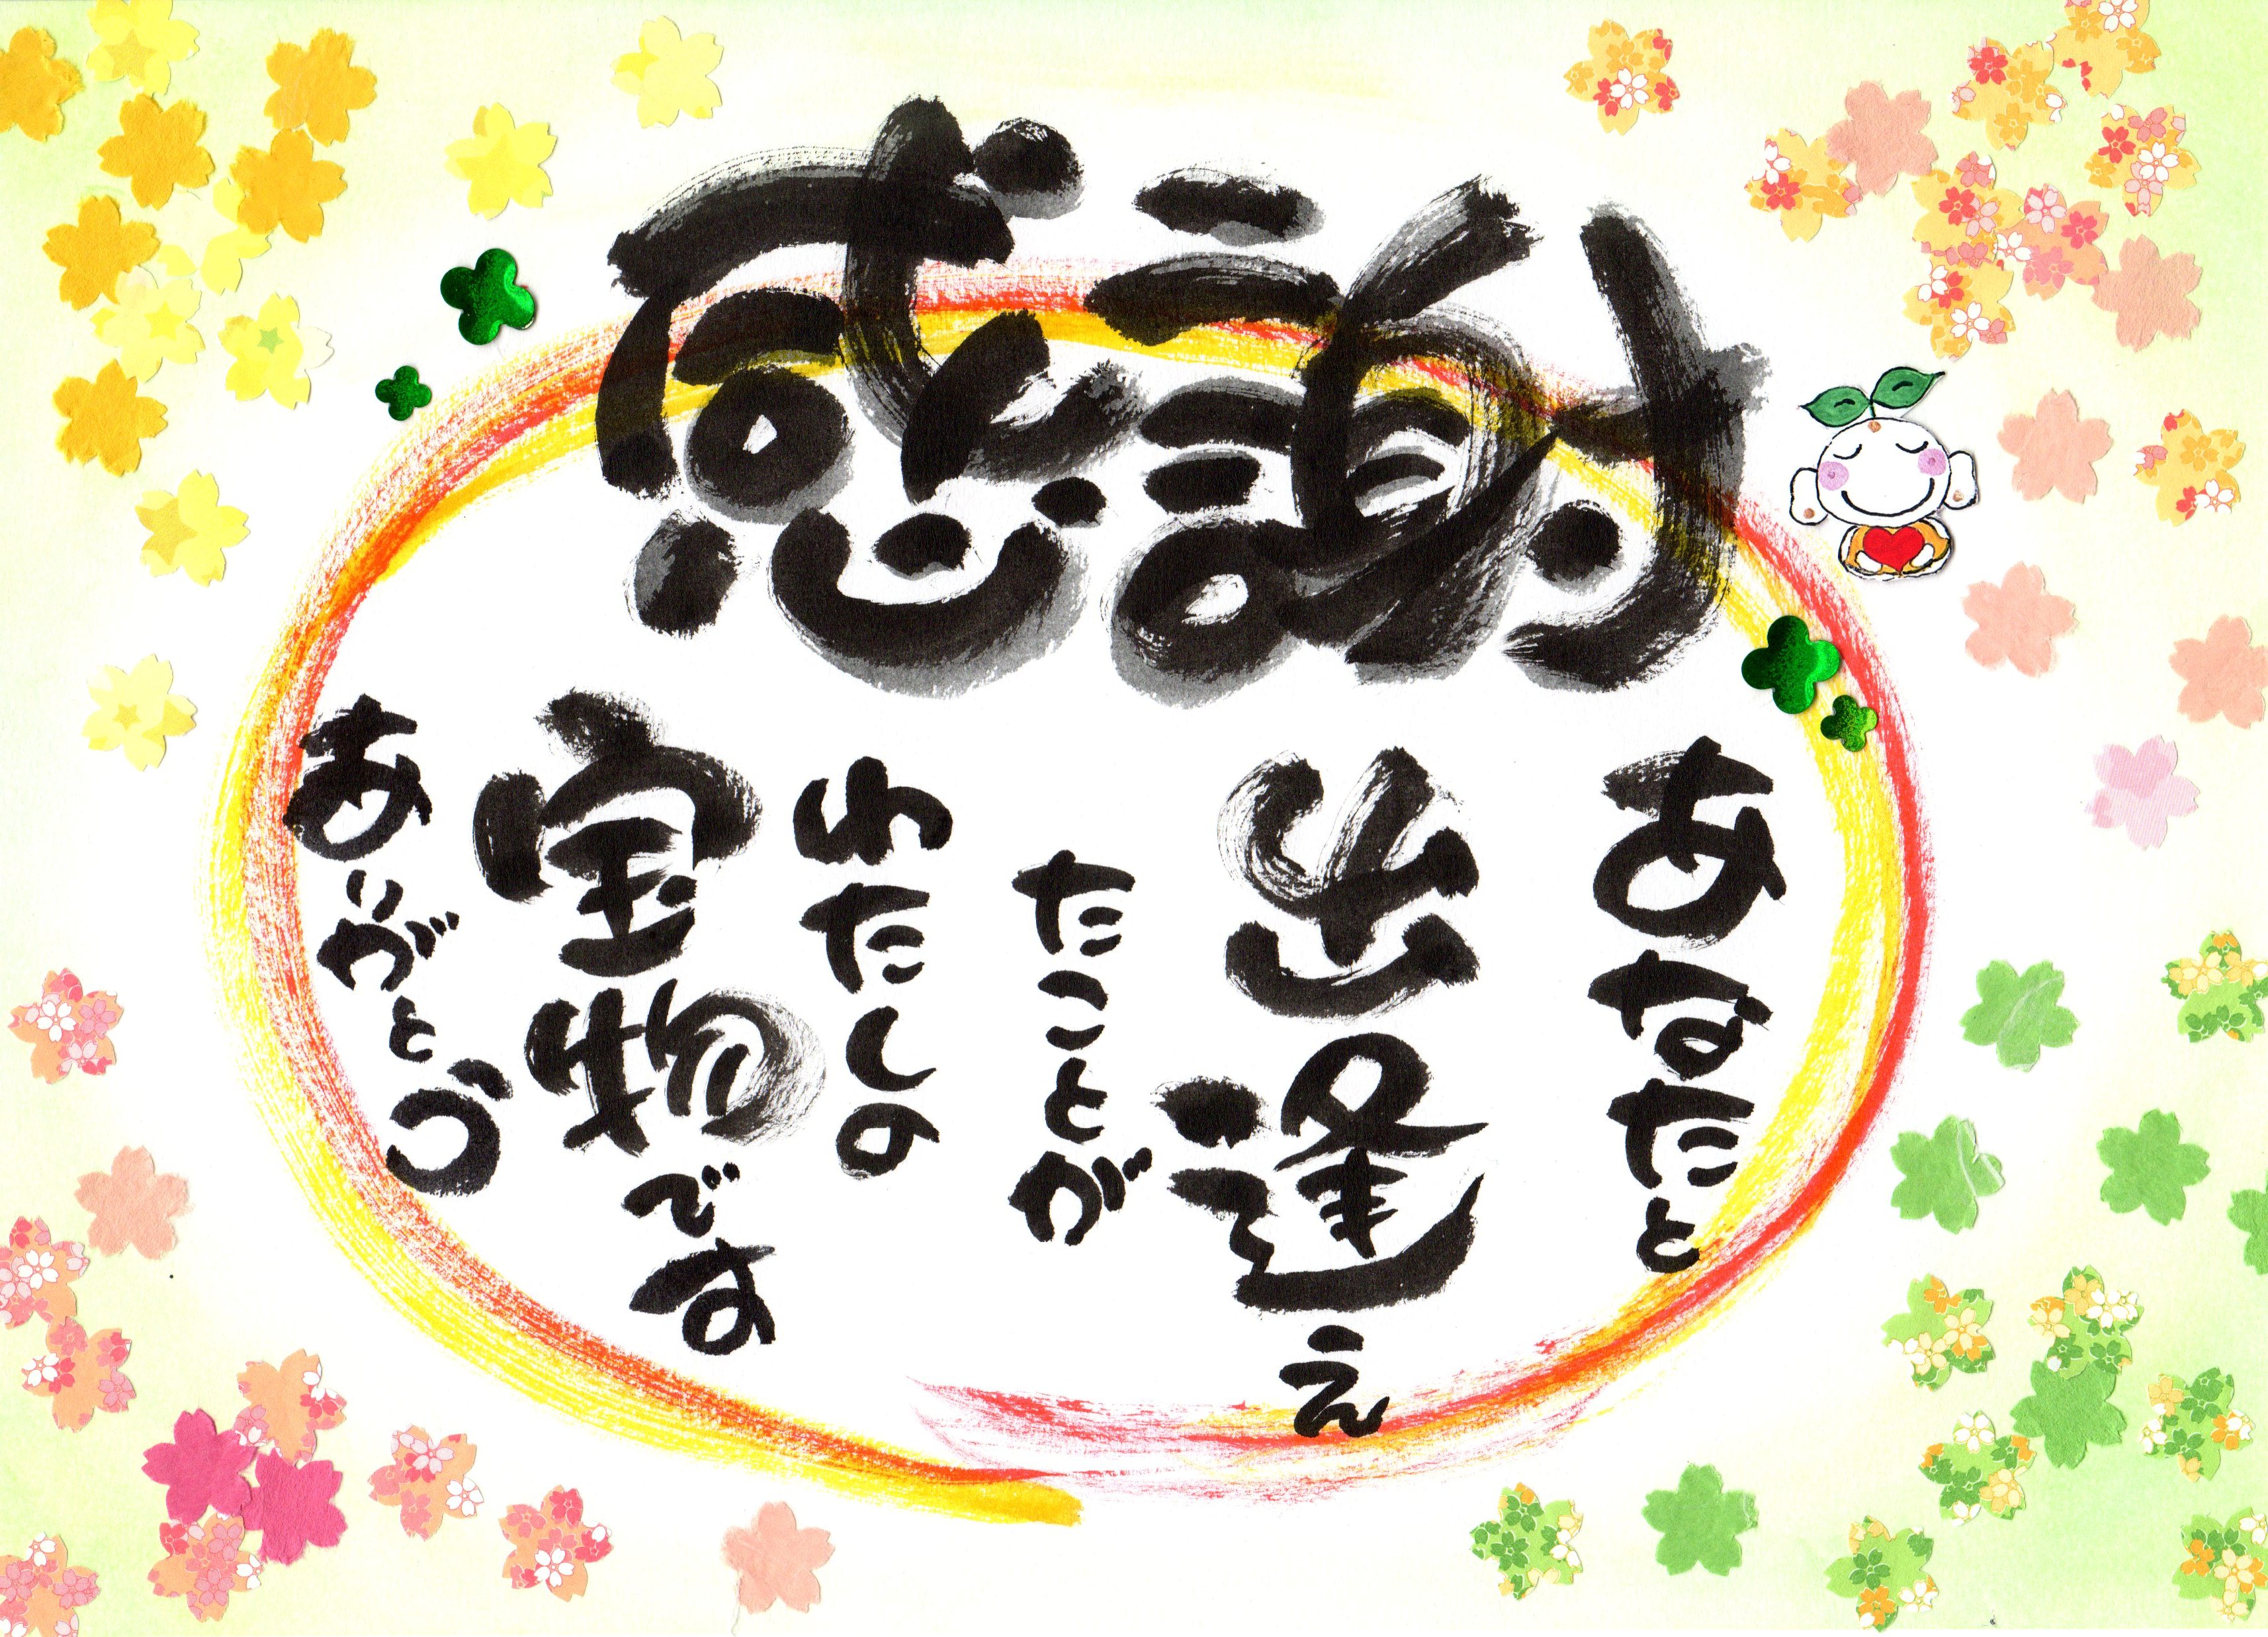 感謝
あなたと
出逢え
たことが
わたしの
宝物です
ありがとう